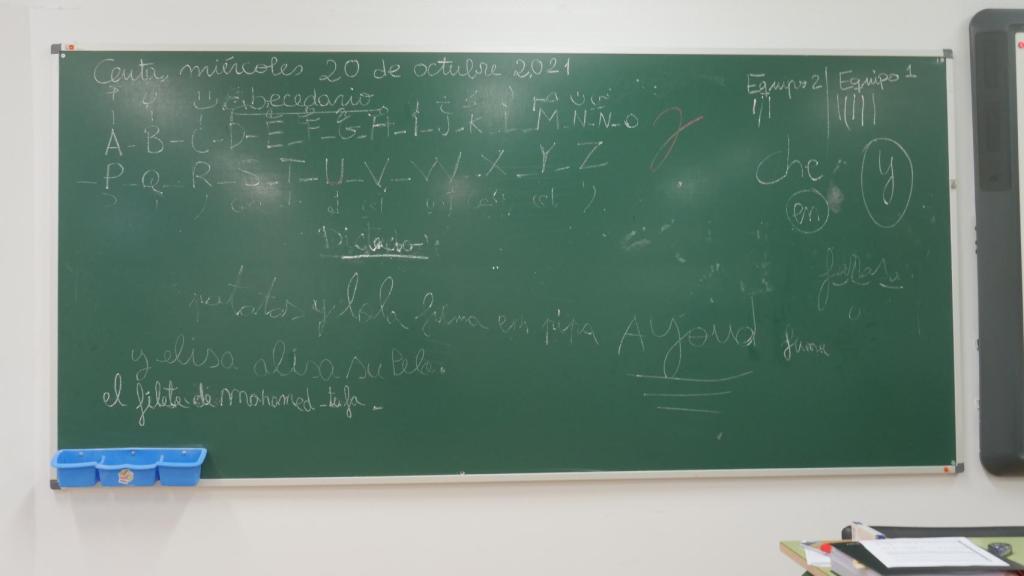 Ceuta, miércoles 20 de octubre 2021
Abecedario
A-B-C-D-E-F-G-H-I-J-K-L-M-N-Ñ-O
-P-Q-R-S-T-U-V-W-X-Y-Z
Equipo 2 | Equipo 1
che
Y
en
Dictado
y lola fuma en pipa
Ayoud
fuma
y elisa alisa su tela.
el filete de Mohamed